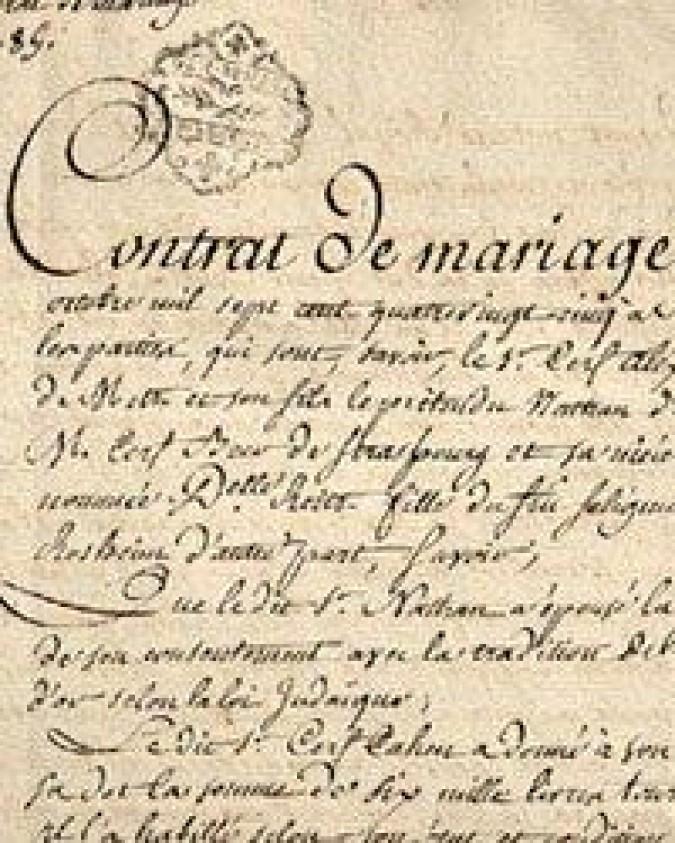 85.
Contrat De mariage
octobre mil sept cent quatre vingt cinq
les parties, qui sont, savoir, le Sr. Cerf
de Metz et son fils le prétendu Nathan
M. Cerf Beer de Strasbourg et sa nièce
nommée Delle. fille du feu
Rosheim d'autre part, Savoir;
Que le dit Sr. Nathan a épousé la
de son consentement avec la tradition
d'or selon la loi Judaïque;
Le dit Sr. Cerf Cahen a donné à son
sa dot la somme de six mille livres tour
et l'a habillé selon son état et